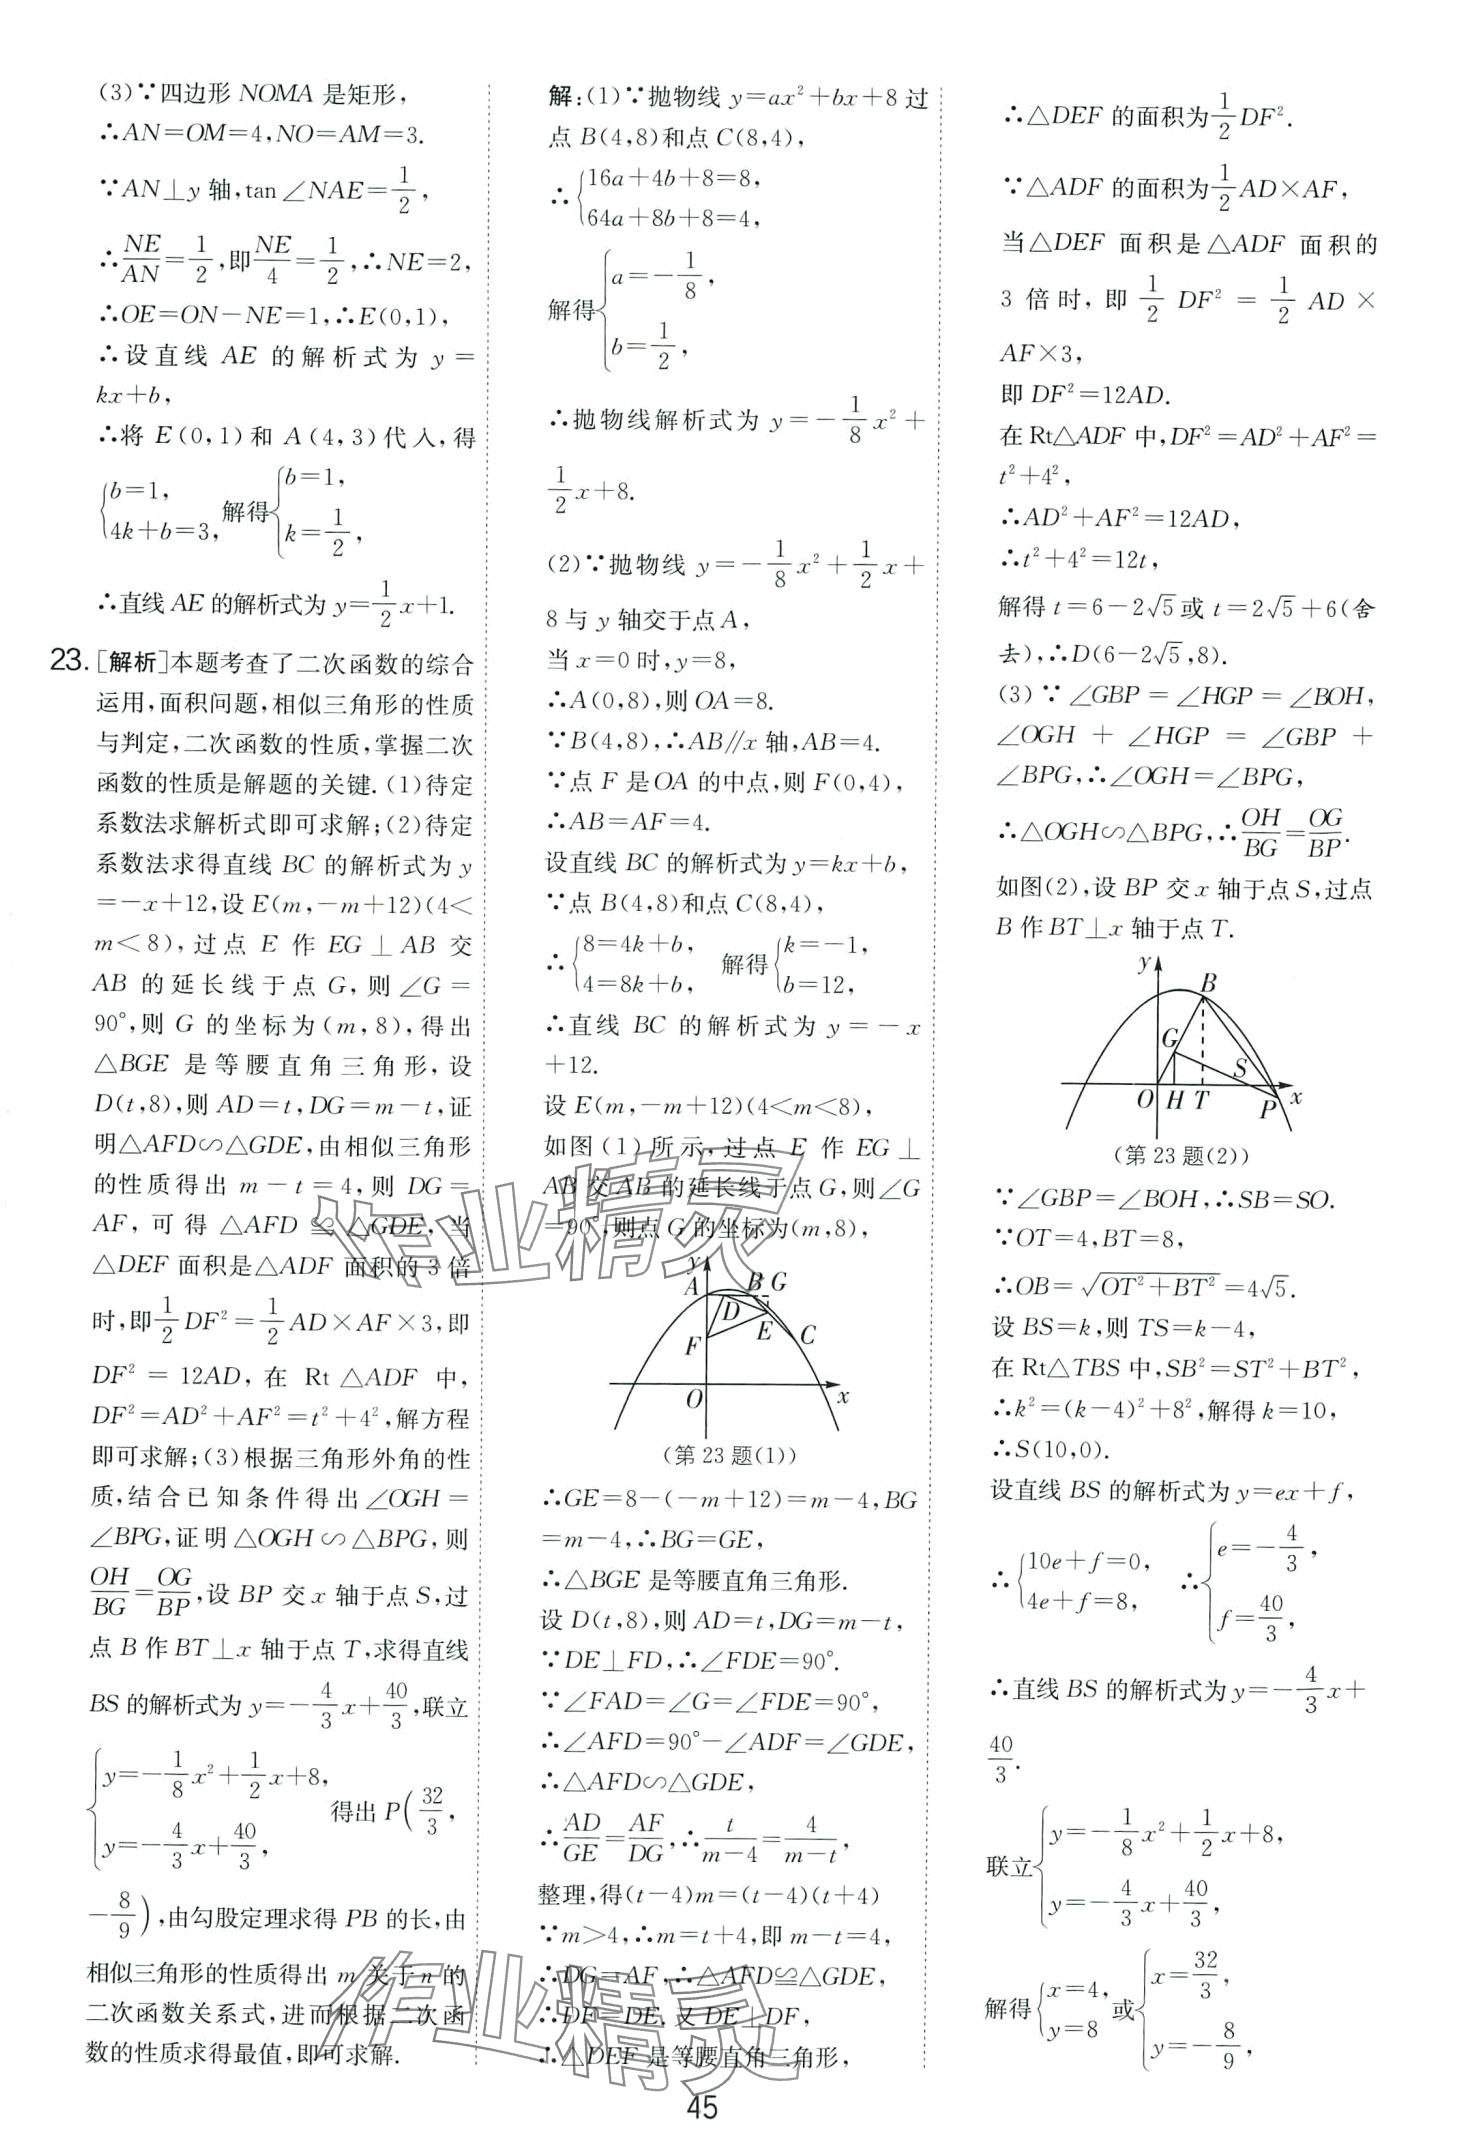 (3)∵四边形 NOMA 是矩形,
∴AN=OM=4,NO=AM=3.
∵AN⊥y 轴,tan∠NAE=1/2,
∴NE/AN=1/2,即NE/4=1/2,∴NE=2,
∴OE=ON-NE=1,∴E(0,1),
∴设直线 AE 的解析式为 y=
kx+b,
∴将 E(0,1)和 A(4,3)代入,得
{b=1, 4k+b=3, 解得{b=1, k=1/2,
∴直线 AE 的解析式为 y=1/2x+1.
23.[解析]本题考查了二次函数的综合
运用,面积问题,相似三角形的性质
与判定,二次函数的性质,掌握二次
函数的性质是解题的关键.(1)待定
系数法求解析式即可求解;(2)待定
系数法求得直线 BC 的解析式为 y
=-x+12,设 E(m,-m+12)(4<
m<8),过点 E 作 EG⊥AB 交
AB 的延长线于点 G,则∠G=
90°,则 G 的坐标为(m,8),得出
△BGE 是等腰直角三角形,设
D(t,8),则 AD=t,DG=m-t,证
明△AFD∽△GDE,由相似三角形
的性质得出 m-t=4,则 DG=
AF,可得 △AFD≌△GDE,当
△DEF 面积是△ADF 面积的 3 倍
时,即1/2DF²=1/2AD×AF×3,即
DF²=12AD,在 Rt△ADF 中,
DF²=AD²+AF²=t²+4²,解方程
即可求解;(3)根据三角形外角的性
质,结合已知条件得出∠OGH=
∠BPG,证明△OGH∽△BPG,则
OH/BG=OG/BP,设 BP 交 x 轴于点 S,过
点 B 作 BT⊥x 轴于点 T,求得直线
BS 的解析式为 y=-4/3x+40/3,联立
{y=-1/8x²+1/2x+8, y=-4/3x+40/3, 得出 P(32/3,
-8/9),由勾股定理求得 PB 的长,由
相似三角形的性质得出 m 关于 n 的
二次函数关系式,进而根据二次函
数的性质求得最值,即可求解.
解:(1)∵抛物线 y=ax²+bx+8 过
点 B(4,8)和点 C(8,4),
∴{16a+4b+8=8, 64a+8b+8=4,
解得{a=-1/8, b=1/2,
∴抛物线解析式为 y=-1/8x²+
1/2x+8.
(2)∵抛物线 y=-1/8x²+1/2x+
8 与 y 轴交于点 A,
当 x=0 时,y=8,
∴A(0,8),则 OA=8.
∵B(4,8),∴AB∥x 轴,AB=4.
∵点 F 是 OA 的中点,则 F(0,4),
∴AB=AF=4.
设直线 BC 的解析式为 y=kx+b,
∵点 B(4,8)和点 C(8,4),
∴{8=4k+b, 4=8k+b, 解得{k=-1, b=12,
∴直线 BC 的解析式为 y=-x
+12.
设 E(m,-m+12)(4<m<8),
如图(1)所示,过点 E 作 EG⊥
AB 交 AB 的延长线于点 G,则∠G
=90°,则点 G 的坐标为(m,8),
y
A B G
D
F E C
O x
(第 23 题(1))
∴GE=8-(-m+12)=m-4,BG
=m-4,∴BG=GE,
∴△BGE 是等腰直角三角形.
设 D(t,8),则 AD=t,DG=m-t,
∵DE⊥FD,∴∠FDE=90°.
∵∠FAD=∠G=∠FDE=90°,
∴∠AFD=90°-∠ADF=∠GDE,
∴△AFD∽△GDE,
∴AD/GE=AF/DG,∴t/(m-4)=4/(m-t),
整理,得(t-4)m=(t-4)(t+4)
∵m>4,∴m=t+4,即 m-t=4,
∴DG=AF,∴△AFD≌△GDE,
∴DF=DE.又 DE⊥DF,
∴△DEF 是等腰直角三角形,
∴△DEF 的面积为1/2DF².
∵△ADF 的面积为1/2AD×AF,
当△DEF 面积是△ADF 面积的
3 倍时,即 1/2DF²=1/2AD×
AF×3,
即 DF²=12AD.
在 Rt△ADF 中,DF²=AD²+AF²=
t²+4²,
∴AD²+AF²=12AD,
∴t²+4²=12t,
解得 t=6-2√5或 t=2√5+6(舍
去),∴D(6-2√5,8).
(3)∵∠GBP=∠HGP=∠BOH,
∠OGH+∠HGP=∠GBP+
∠BPG,∴∠OGH=∠BPG,
∴△OGH∽△BPG,∴OH/BG=OG/BP.
如图(2),设 BP 交 x 轴于点 S,过点
B 作 BT⊥x 轴于点 T.
y
B
G
S
O H T P x
(第 23 题(2))
∵∠GBP=∠BOH,∴SB=SO.
∵OT=4,BT=8,
∴OB=√(OT²+BT²)=4√5.
设 BS=k,则 TS=k-4,
在 Rt△TBS 中,SB²=ST²+BT²,
∴k²=(k-4)²+8²,解得 k=10,
∴S(10,0).
设直线 BS 的解析式为 y=ex+f,
∴{10e+f=0, 4e+f=8, ∴{e=-4/3, f=40/3,
∴直线 BS 的解析式为 y=-4/3x+
40/3.
联立{y=-1/8x²+1/2x+8, y=-4/3x+40/3,
解得{x=4, y=8 或{x=32/3, y=-8/9,
45
作业精灵
作业精灵